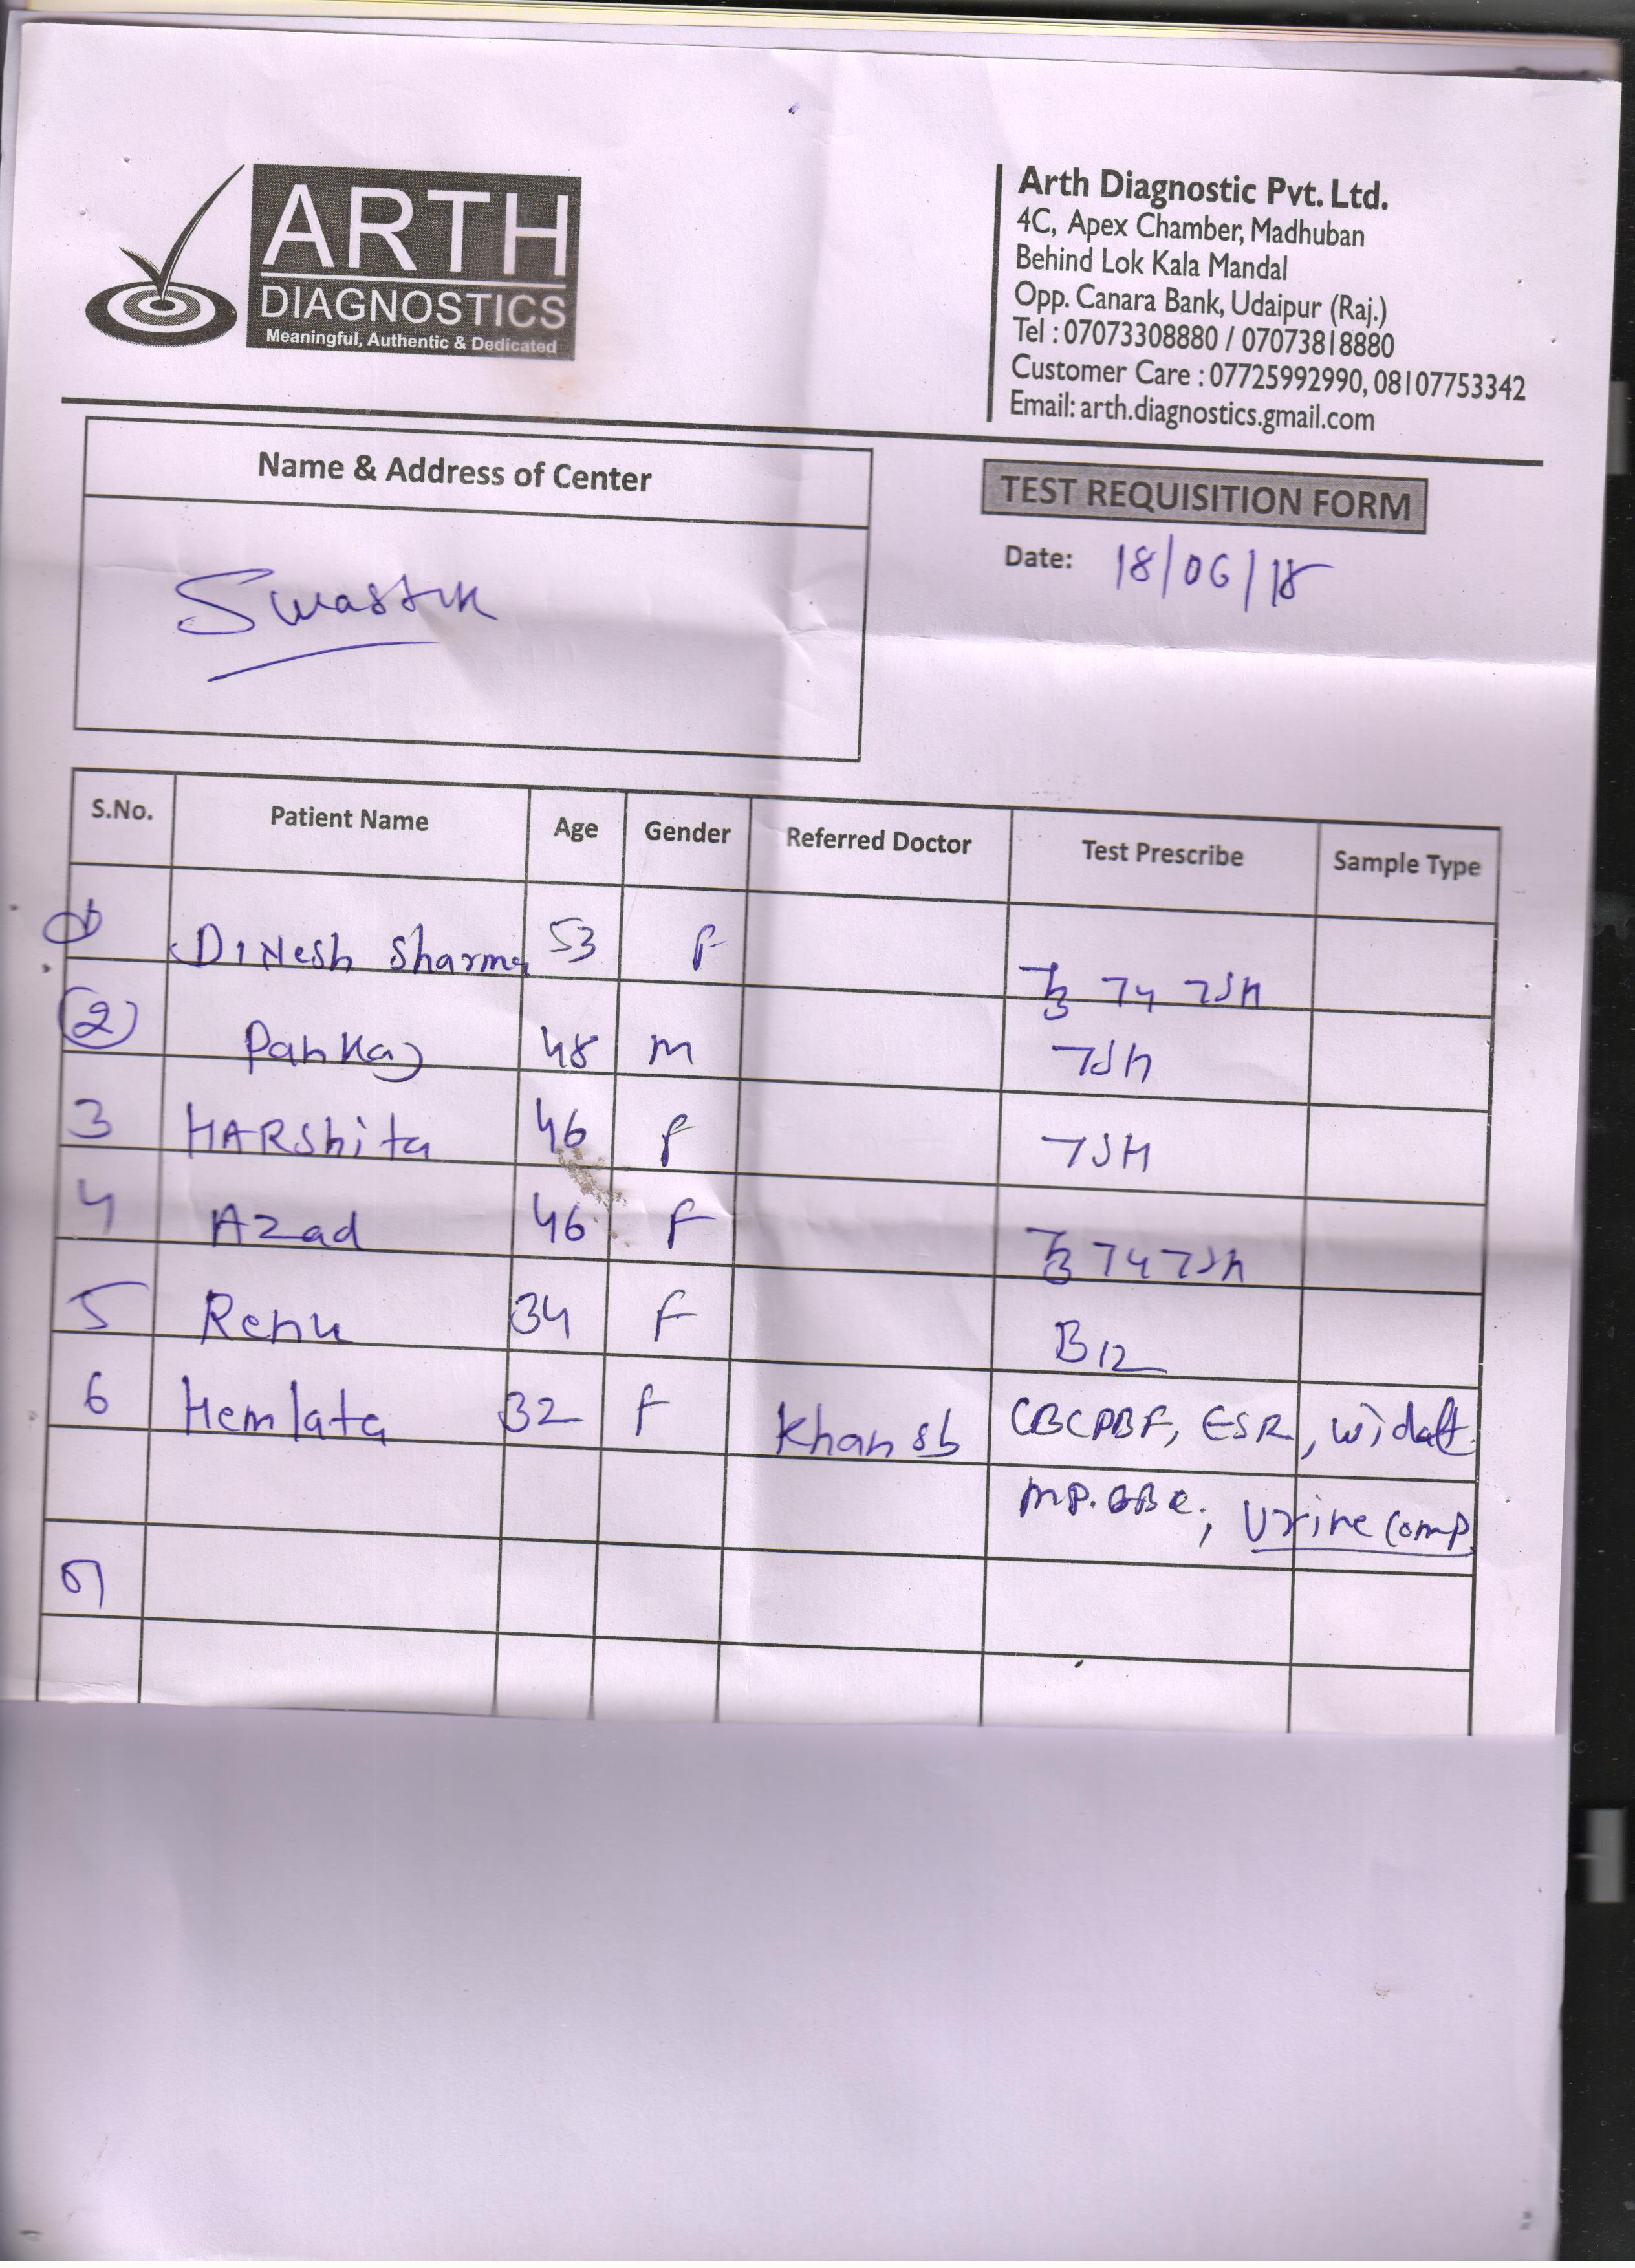 ARTH
DIAGNOSTICS
Meaningful, Authentic & Dedicated
Arth Diagnostic Pvt. Ltd.
4C, Apex Chamber, Madhuban
Behind Lok Kala Mandal
Opp. Canara Bank, Udaipur (Raj.)
Tel : 07073308880 / 07073818880
Customer Care : 07725992990, 08107753342
Email: arth.diagnostics.gmail.com
Name & Address of Center
TEST REQUISITION FORM
Date: 18/06/18
Swastik
S.No. Patient Name Age Gender Referred Doctor Test Prescribe Sample Type
1 Dinesh Sharma 53 F T3 T4 TSH
2 Pankaj 48 M TSH
3 HARShita 46 F TSH
4 Azad 46 F T3 T4 TSH
5 Renu 34 F B12
6 Hemlata 32 F Khan sb CBCPBF, ESR, Widal
MP. , Urine Comp